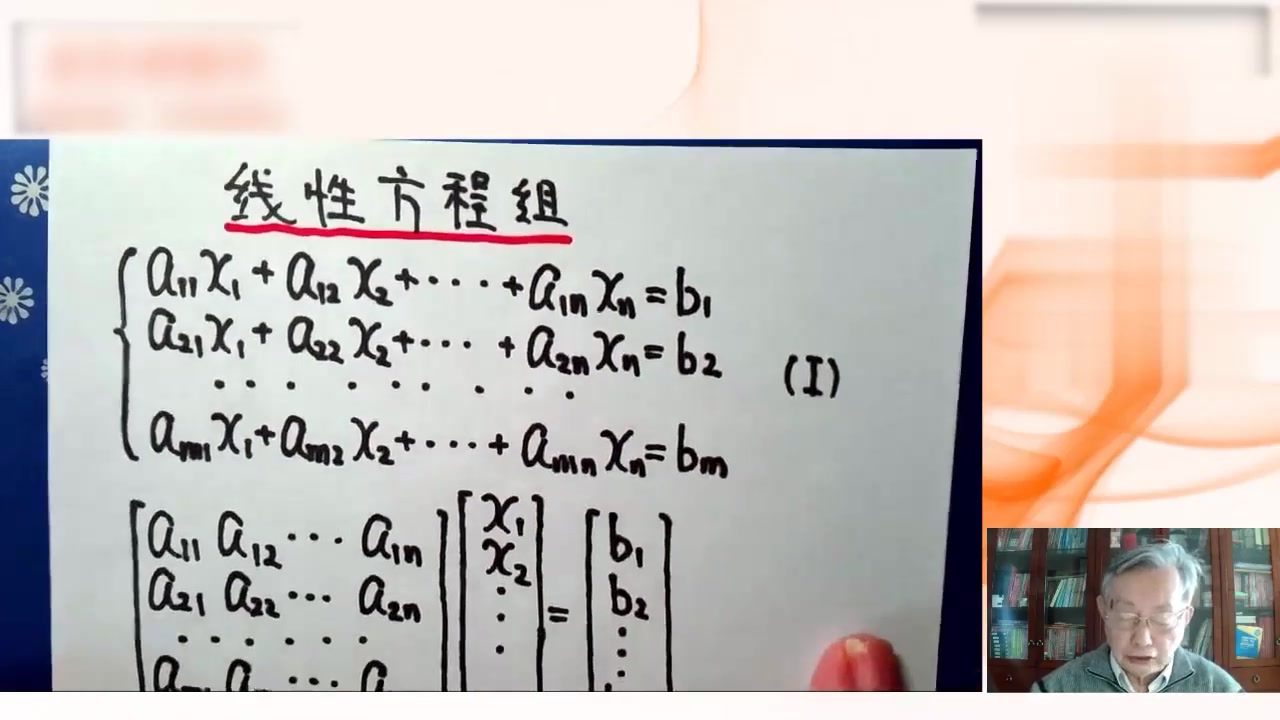 线性方程组
a₁₁x₁+a₁₂x₂+···+a₁ₙxₙ=b₁
a₂₁x₁+a₂₂x₂+···+a₂ₙxₙ=b₂
· · · · · · · · ·
(I)
aₘ₁x₁+aₘ₂x₂+···+aₘₙxₙ=bₘ
a₁₁ a₁₂ ··· a₁ₙ x₁ b₁
a₂₁ a₂₂ ··· a₂ₙ x₂ = b₂